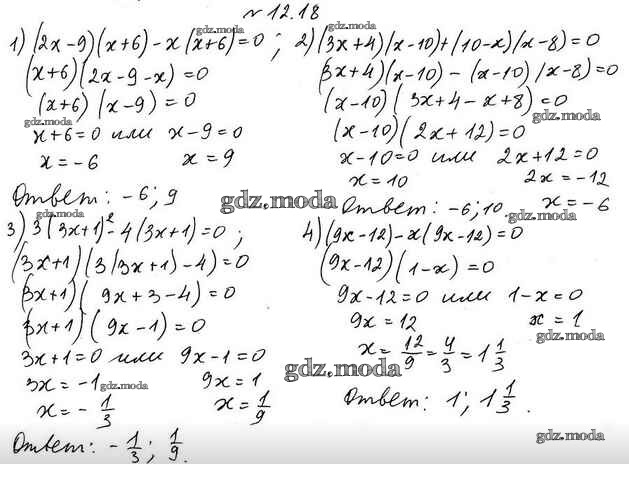 № 12.18
1) (2x-9)(x+6)-x(x+6)=0;
(x+6)(2x-9-x)=0
(x+6)(x-9)=0
x+6=0 или x-9=0
x=-6 x=9
Ответ: -6; 9
2) (3x+4)(x-10)+(10-x)(x-8)=0
(3x+4)(x-10)-(x-10)(x-8)=0
(x-10)(3x+4-x+8)=0
(x-10)(2x+12)=0
x-10=0 или 2x+12=0
x=10 2x=-12
x=-6
Ответ: -6; 10.
3) 3(3x+1)²-4(3x+1)=0;
(3x+1)(3(3x+1)-4)=0
(3x+1)(9x+3-4)=0
(3x+1)(9x-1)=0
3x+1=0 или 9x-1=0
3x=-1 9x=1
x=-1/3 x=1/9
Ответ: -1/3; 1/9.
4) (9x-12)-x(9x-12)=0
(9x-12)(1-x)=0
9x-12=0 или 1-x=0
9x=12 x=1
x=12/9=4/3=1 1/3
Ответ: 1; 1 1/3.
gdz.moda
gdz.moda
gdz.moda
gdz.moda
gdz.moda
gdz.moda
gdz.moda
gdz.moda
gdz.moda
gdz.moda
gdz.moda
gdz.moda
gdz.moda